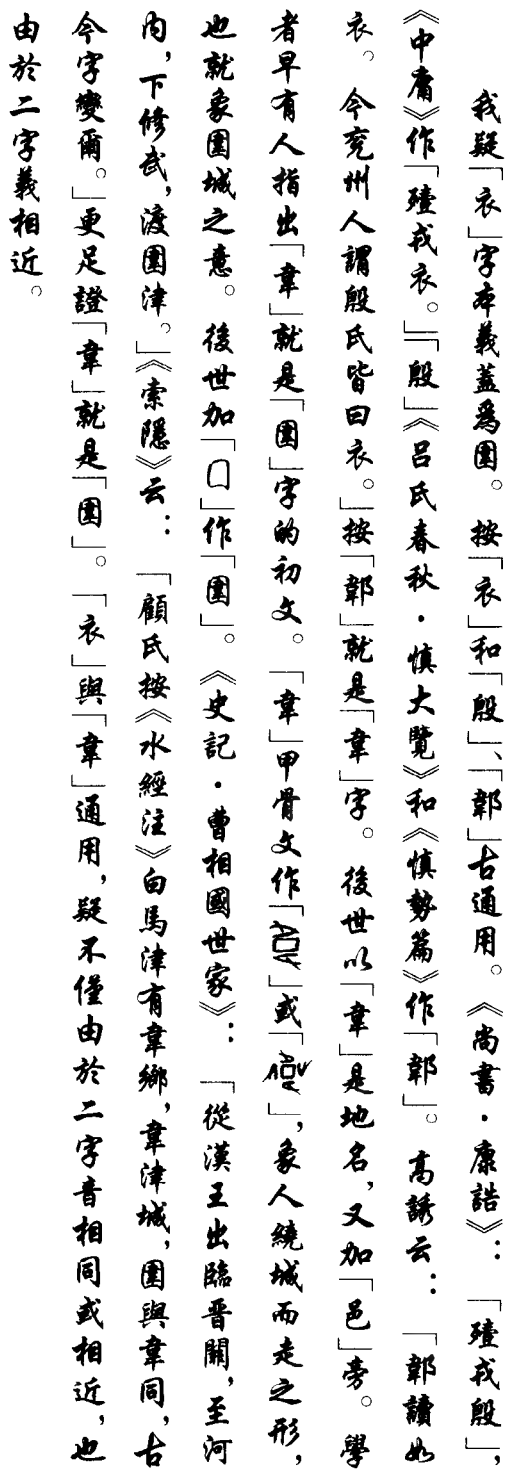 我疑「衣」字本義蓋爲圍。按「衣」和「殷」、「鄣」古通用。《尚書·康誥》：「殪戎殷」，
《中庸》作「殪戎衣。」「殷」《呂氏春秋·慎大覽》和《慎勢篇》作「郼」。高誘云：「郼讀如
衣。今兗州人謂殷氏皆曰衣。」按「郼」就是「韋」字。後世以「韋」是地名，又加「邑」旁。學
者早有人指出「韋」就是「圍」字的初文。「韋」甲骨文作「」或「」，象人繞城而走之形，
也就象圍城之意。後世加「囗」作「圍」。《史記·曹相國世家》：「從漢王出臨晉關，至河
內，下修武，渡圍津。」《索隱》云：「顧氏按《水經注》白馬津有韋鄉，韋津城，圍與韋同，古
今字變爾。」更足證「韋」就是「圍」。「衣」與「韋」通用，疑不僅由於二字音相同或相近，也
由於二字義相近。